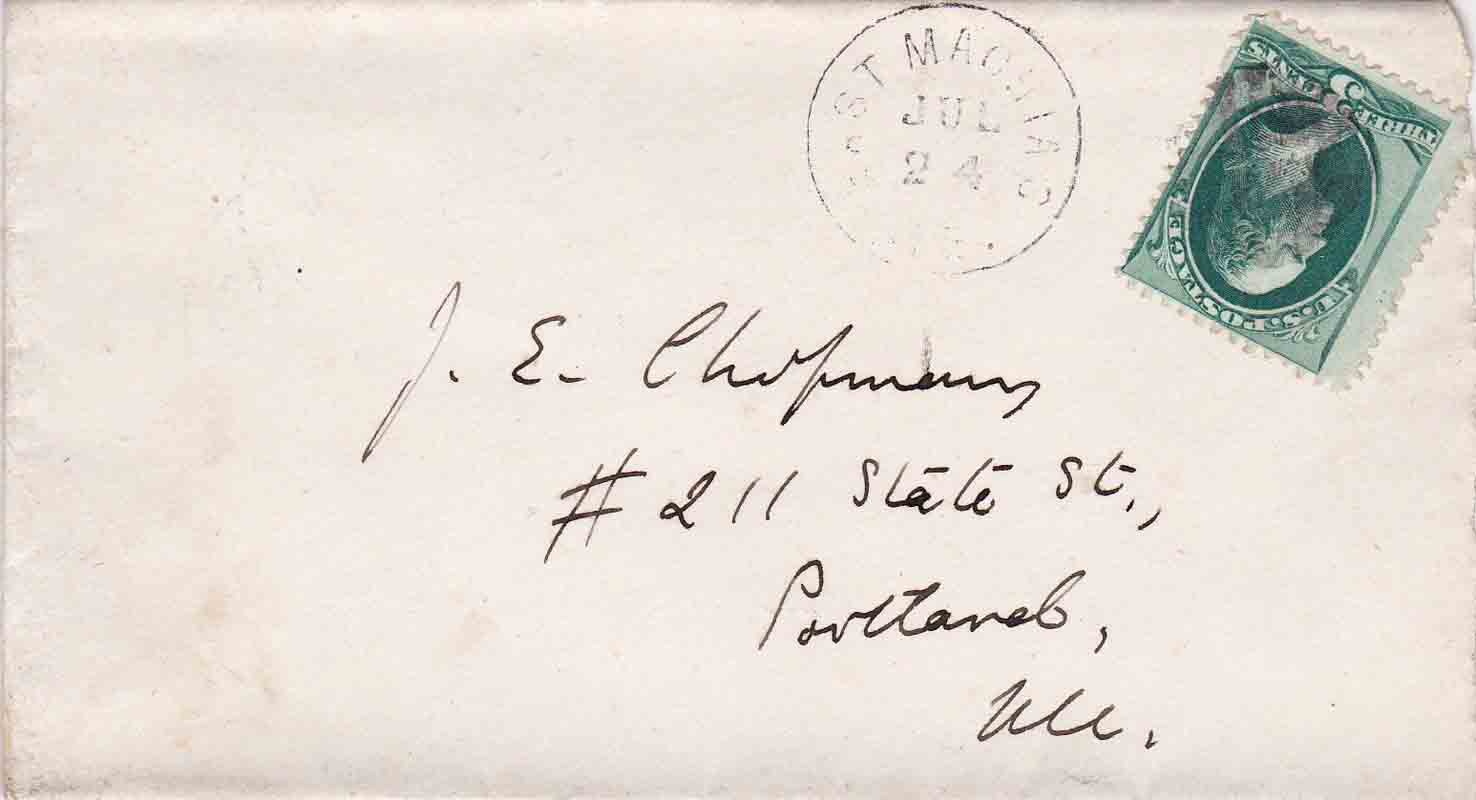 EAST MACHIAS
JUL
24
ME.
U.S. POSTAGE
J. E. Chapman,
# 211 State St.,
Portland,
Me.